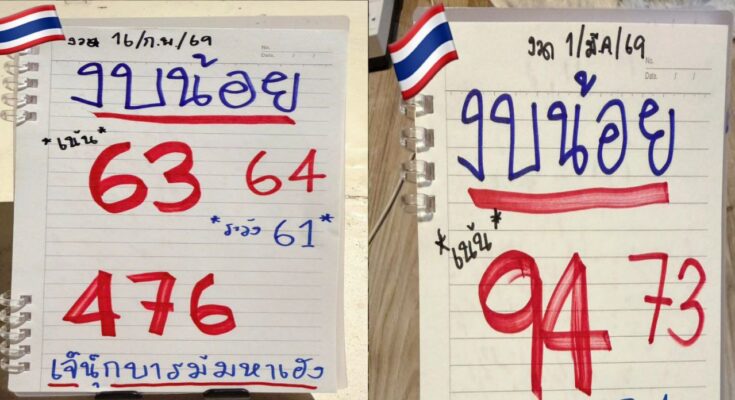 งวด 16/ก.พ/69
No.
Date.
งบน้อย
*เน้น*
63 64
*ระวัง 61*
476
เจ๊นุ๊กบารมีมหาเฮง
งวด 1/มีค/69
No.
Date.
งบน้อย
*เน้น*
94 73